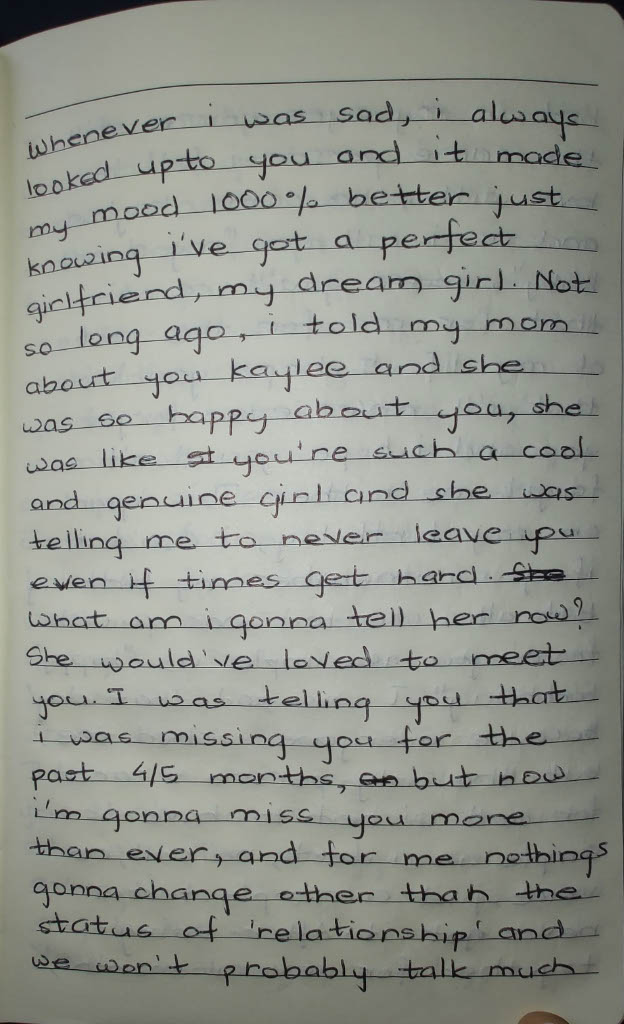 whenever i was sad, i always
looked upto you and it made
my mood 1000% better just
knowing i've got a perfect
girlfriend, my dream girl. Not
so long ago, i told my mom
about you kaylee and she
was so happy about you, she
was like you're such a cool
and genuine girl and she was
telling me to never leave you
even if times get hard. She
what am i gonna tell her now?
She would've loved to meet
you. I was telling you that
i was missing you for the
past 4/5 months, but now
i'm gonna miss you more
than ever, and for me nothings
gonna change other than the
status of 'relationship' and
we won't probably talk much